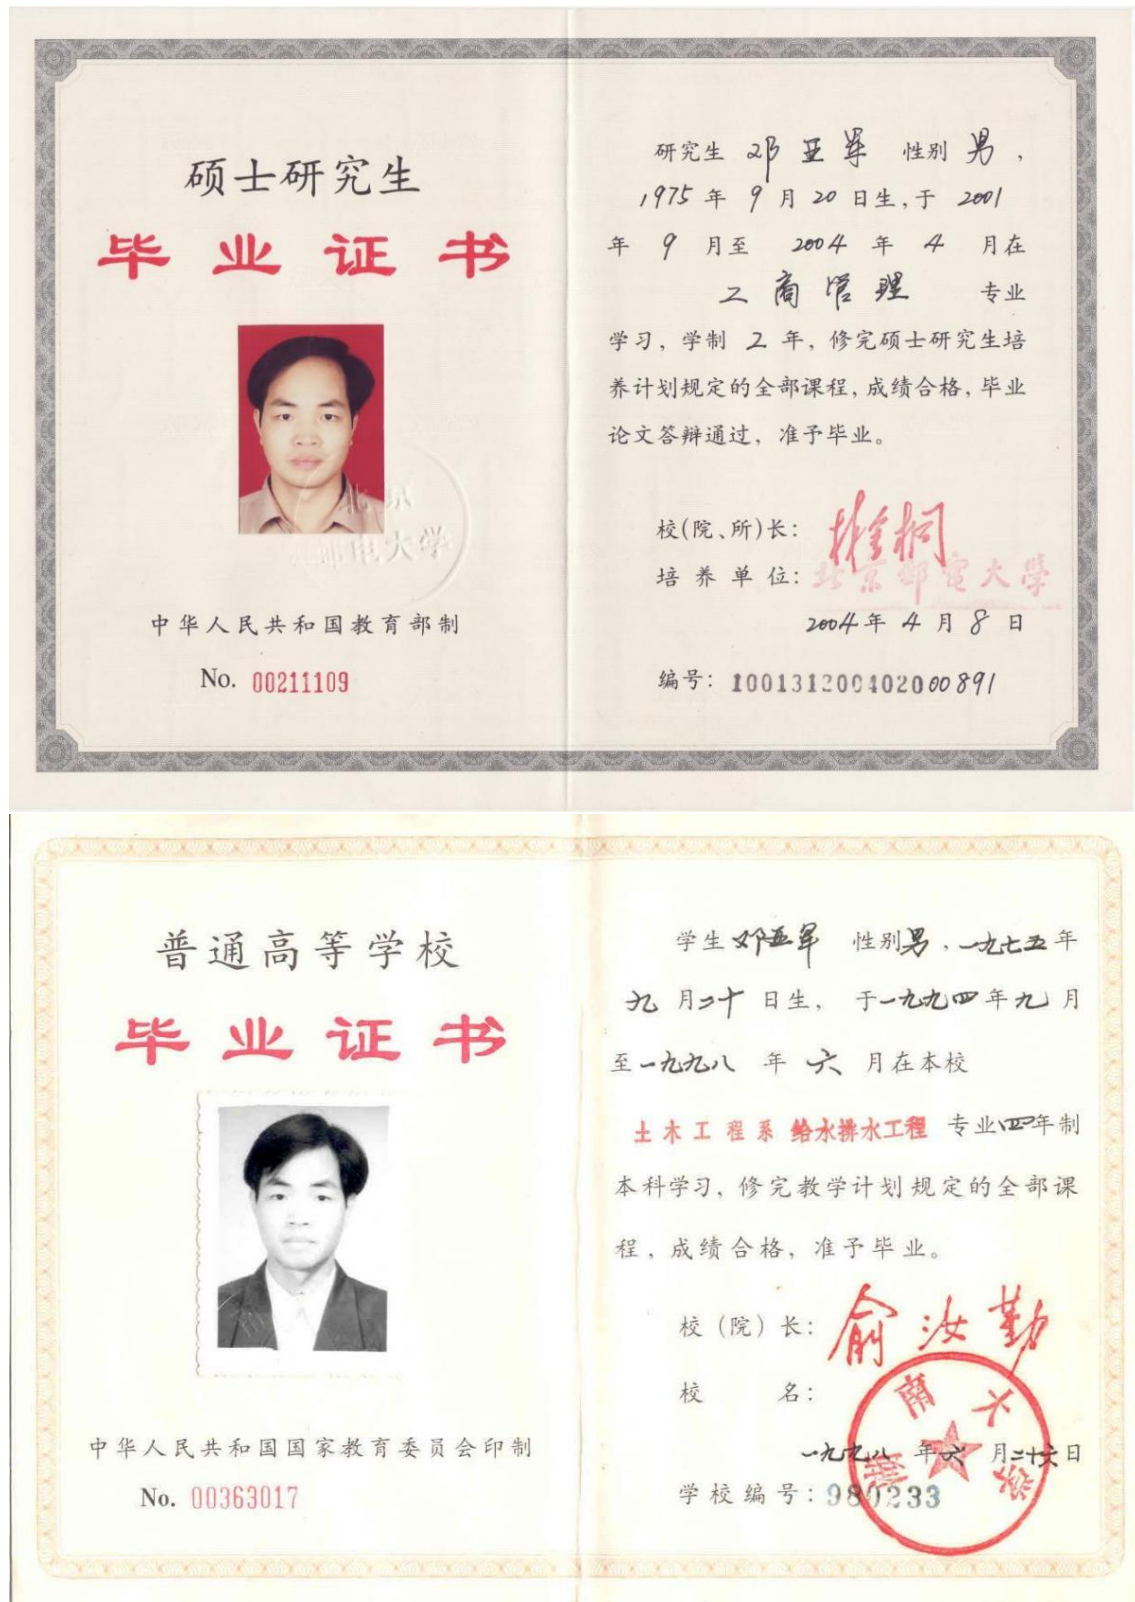 硕士研究生
毕业证书
北京
邮电大学
中华人民共和国教育部制
No. 00211109
研究生 邓亚军 性别 男，
1975 年 9 月 20 日生，于 2001
年 9 月至 2004 年 4 月在
工商管理 专业
学习，学制 2 年，修完硕士研究生培
养计划规定的全部课程，成绩合格，毕业
论文答辩通过，准予毕业。
校(院、所)长：
培养单位：北京邮電大學
2004 年 4 月 8 日
编号：100131200402000891
普通高等学校
毕业证书
中华人民共和国国家教育委员会印制
No. 00363017
学生 邓亚军 性别 男，一九七五年
九月二十日生，于一九九四年九月
至一九九八年六月在本校
土木工程系 给水排水工程 专业四年制
本科学习，修完教学计划规定的全部课
程，成绩合格，准予毕业。
校（院）长：俞汝勤
校名：
湖南大学
一九九八年六月二十六日
学校编号：980233